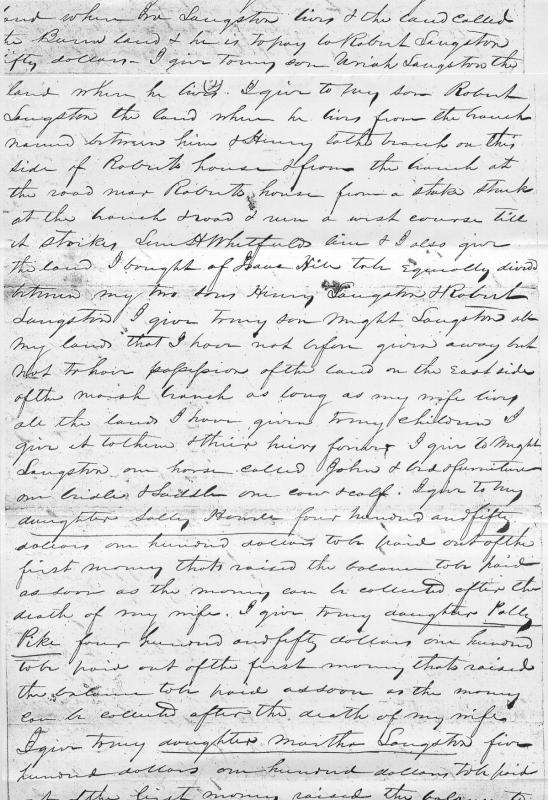 and where Ira Langston lives & the land called
the Barn land & he is to pay to Robert Langston
fifty dollars - I give to my son Uriah Langston the
land where he lives. I give to my son Robert
Langston the land where he lives from the branch
named between him & Henry to the branch on this
side of Roberts house & from the branch at
the road near Roberts house from a stake stuck
at the branch & road & run a west course till
it strikes H Whitfields line & I also give
the land I bought of Isaac Hill to be Equally divided
between my two sons Henry Langston & Robert
Langston I give to my son Might Langston all
my lands that I have not before given away but
not to have possession of the land on the East side
of the marsh branch as long as my wife lives
all the lands I have given to my children I
give it to them & their heirs forever I give to Might
Langston one horse called John & bed & furniture
one bridle & Saddle one cow & calf. I give to my
daughter Sally four hundred and fifty
dollars one hundred dollars to be paid out of the
first money thats raised the balance to be paid
as soon as the money can be collected after the
death of my wife. I give to my daughter Polly
Pike four hundred and fifty dollars one hundred
to be paid out of the first money thats raised
the balance to be paid as soon as the money
can be collected after the death of my wife
I give to my daughter Martha Langston five
hundred dollars one hundred dollars to be paid
out of the first money raised the balance to